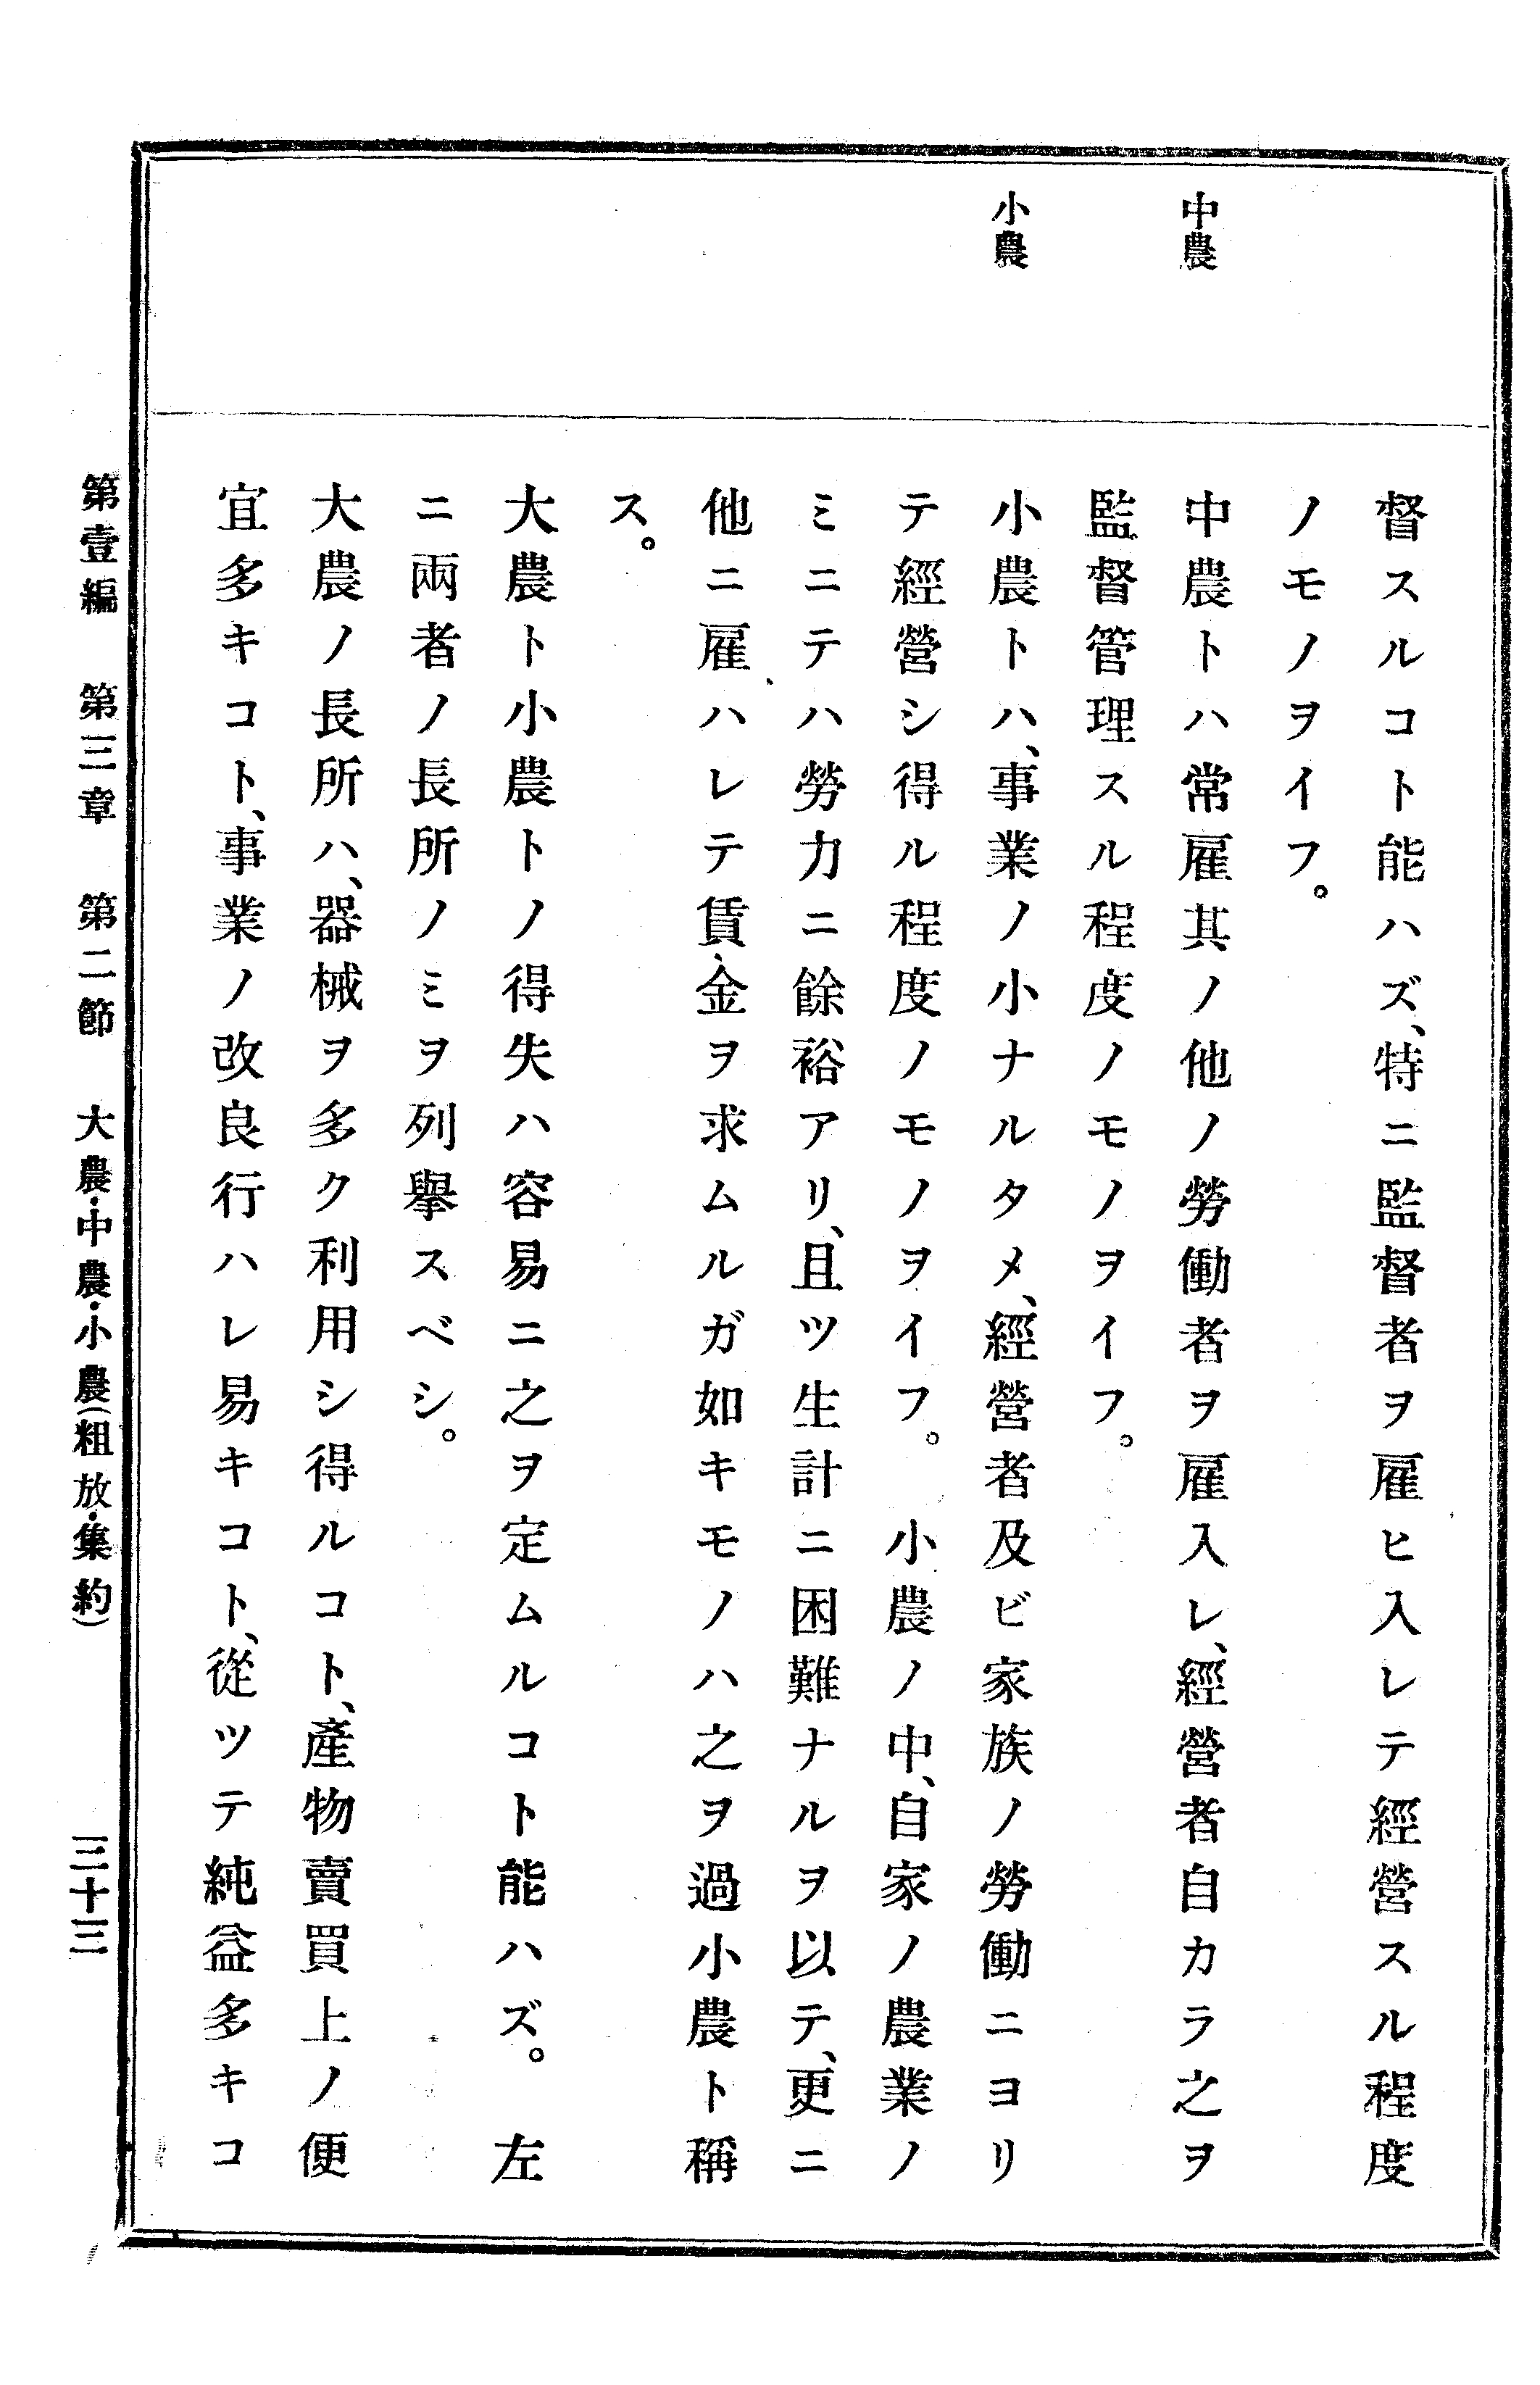 中農
小農
督スルコト能ハズ、特ニ監督者ヲ雇ヒ入レテ經營スル程度
ノモノヲイフ。
中農トハ常雇其ノ他ノ勞働者ヲ雇入レ、經營者自カラ之ヲ
監督管理スル程度ノモノヲイフ。
小農トハ、事業ノ小ナルタメ、經營者及ビ家族ノ勞働ニヨリ
テ經營シ得ル程度ノモノヲイフ。 小農ノ中、自家ノ農業ノ
ミニテハ勞力ニ餘裕アリ、且ツ生計ニ困難ナルヲ以テ、更ニ
他ニ雇ハレテ賃金ヲ求ムルガ如キモノハ之ヲ過小農ト稱
ス。
大農ト小農トノ得失ハ容易ニ之ヲ定ムルコト能ハズ。 左
ニ兩者ノ長所ノミヲ列擧スベシ。
大農ノ長所ハ、器械ヲ多ク利用シ得ルコト、產物賣買上ノ便
宜多キコト、事業ノ改良行ハレ易キコト、從ツテ純益多キコ
第壹編 第三章 第二節 大農・中農・小農(粗放・集約) 三十三